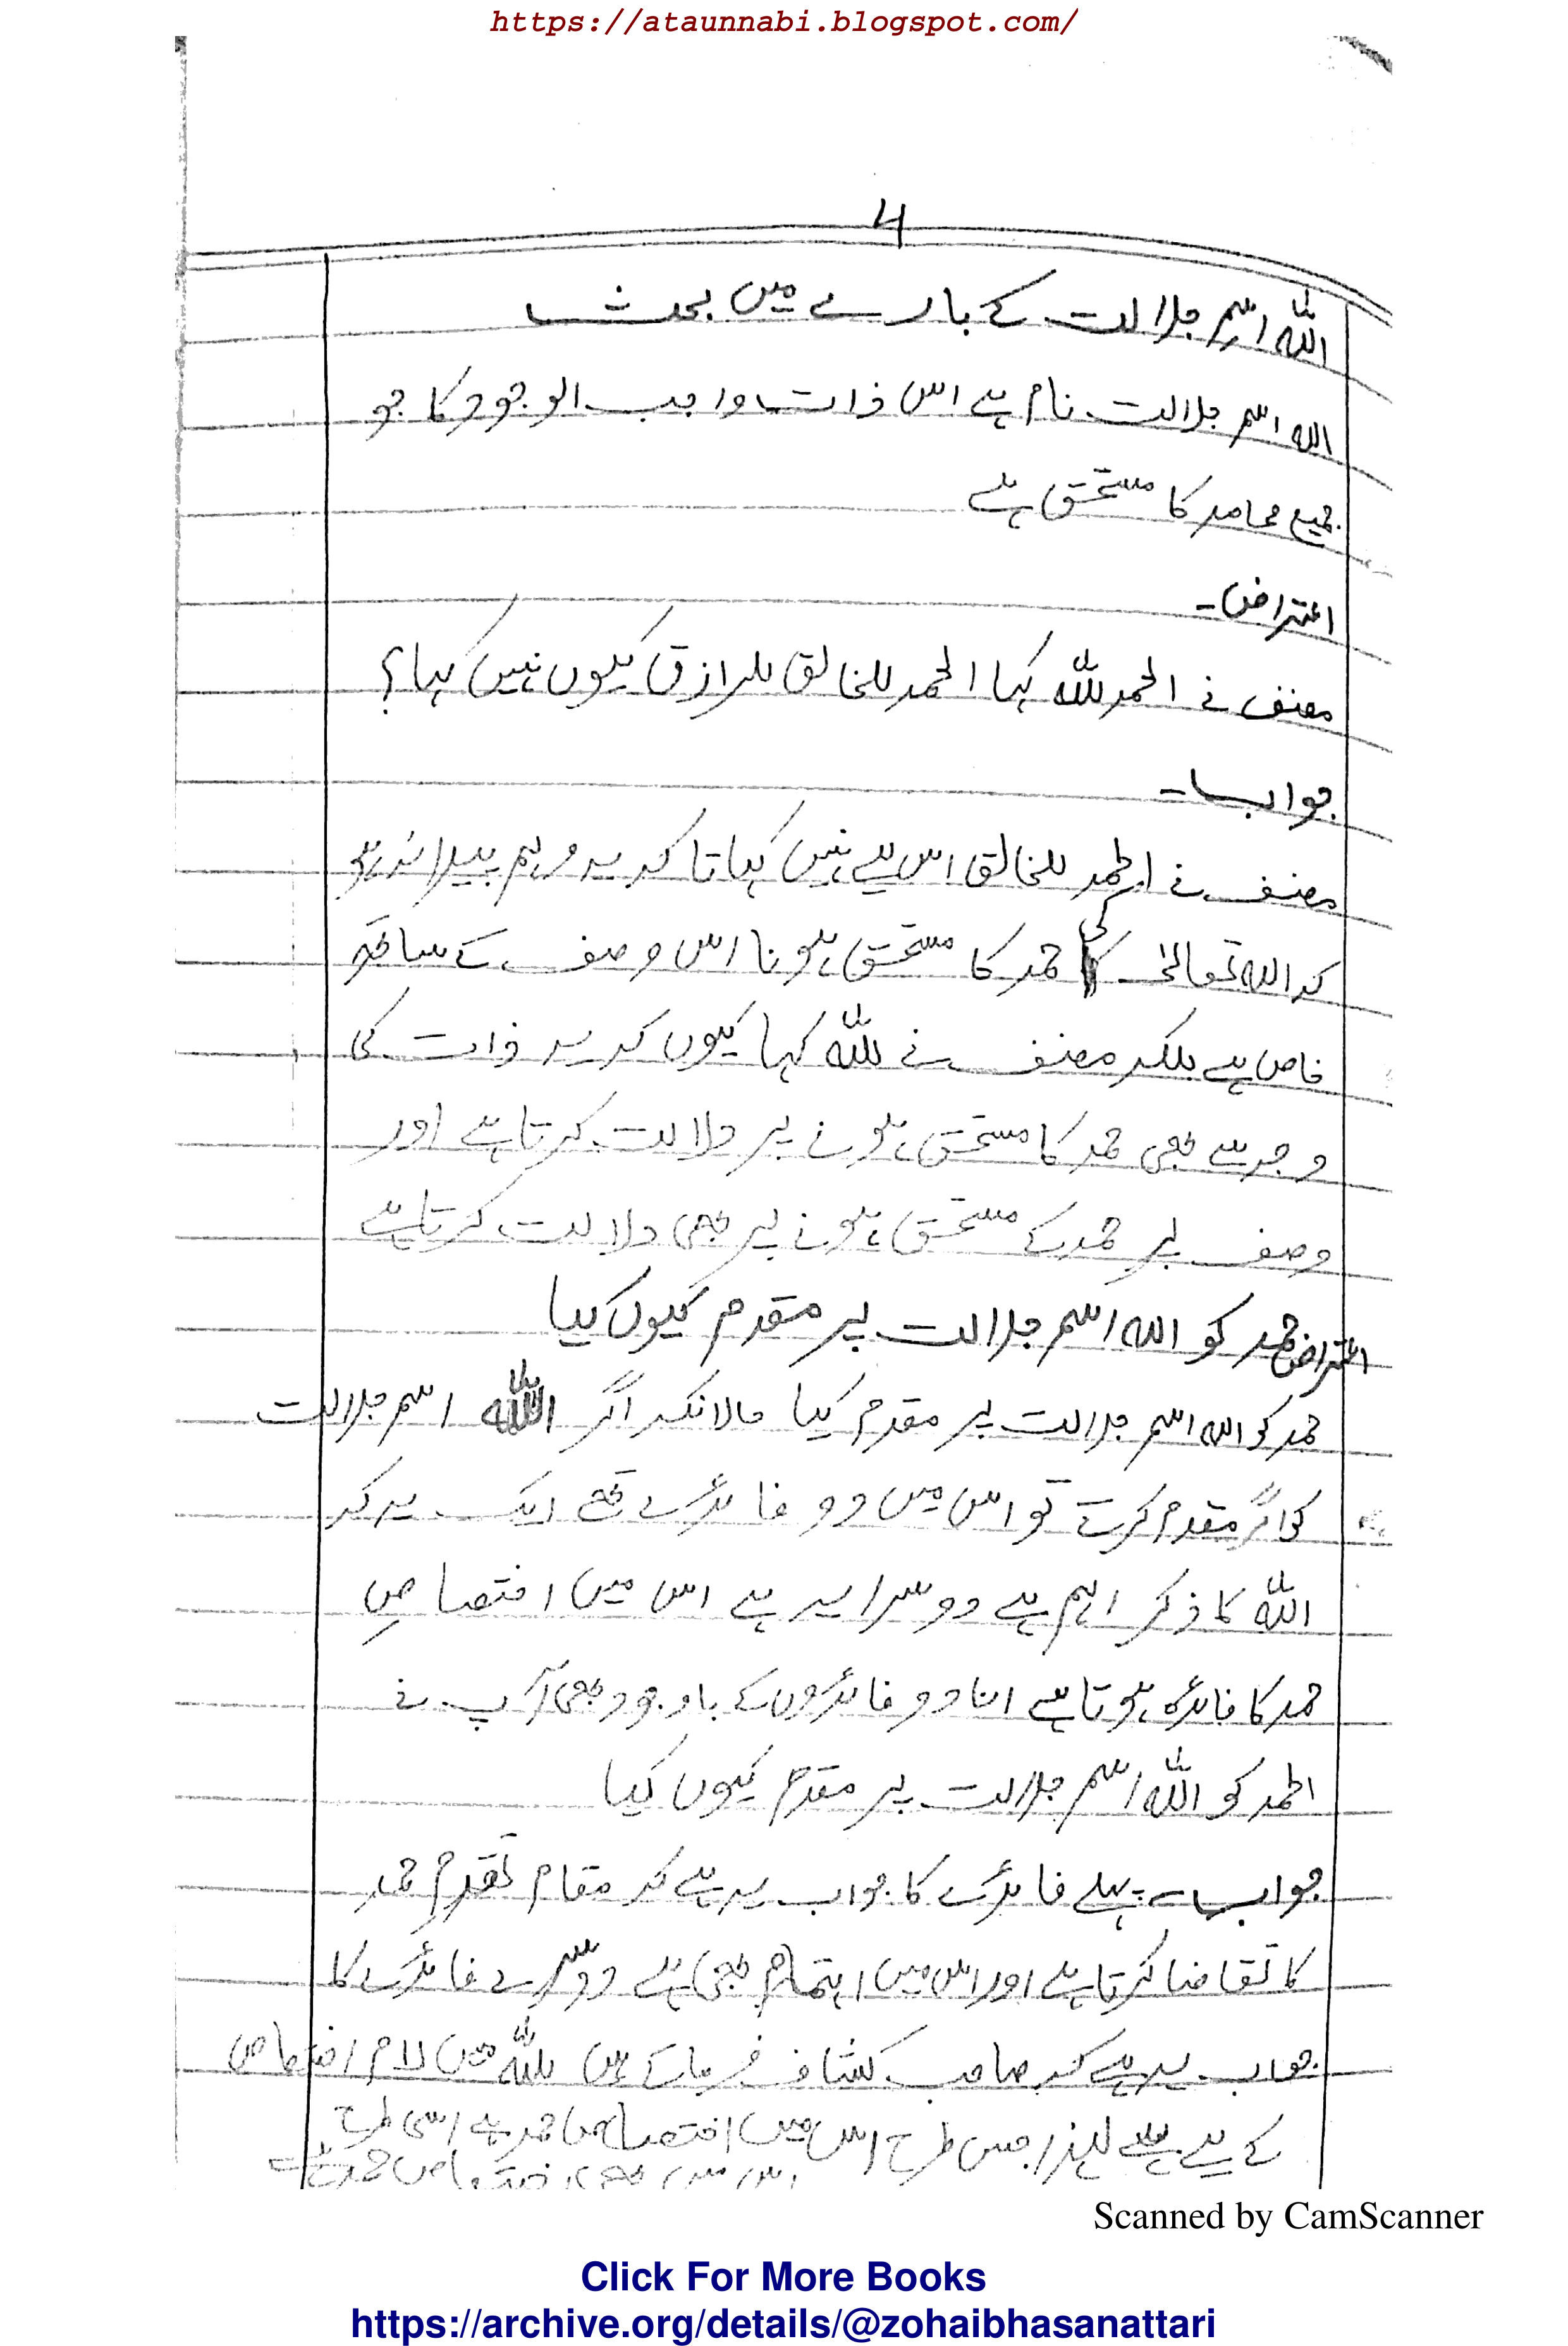 https://ataunnabi.blogspot.com/
4
اللہ اسم جلالت کے بارے میں بحث
اللہ اسم جلالت نام ہے اس ذات واجب الوجود کا جو
جمیع محامد کا مستحق ہے
اعتراض۔
مصنف نے الحمدللہ کہا الحمد للخالق للرازق کیوں نہیں کہا؟
جواب۔
مصنف نے الحمد للخالق اس لیے نہیں کہا تا کہ یہ وہم پیدا نہ ہو
کہ اللہ تعالیٰ کی حمد کا مستحق ہونا اس وصف کے ساتھ
خاص ہے بلکہ مصنف نے للہ کہا کیوں کہ یہ ذات کی
وجہ سے بھی حمد کا مستحق ہونے پر دلالت کرتا ہے اور
وصف پر حمد کے مستحق ہونے پر بھی دلالت کرتا ہے
اعتراض حمد کو اللہ اسم جلالت پر مقدم کیوں کیا
حمد کو اللہ اسم جلالت پر مقدم کیا حالانکہ اگر اللہ اسم جلالت
کو اگر مقدم کرتے تو اس میں دو فائدے تھے ایک یہ کہ
اللہ کا ذکر اہم ہے دوسرا یہ ہے اس میں اختصاصِ
حمد کا فائدہ ہوتا ہے ان دو فائدوں کے باوجود بھی آپ نے
الحمد کو اللہ اسم جلالت پر مقدم کیوں کیا
جواب۔ پہلے فائدے کا جواب یہ ہے کہ مقام تقدمِ حمد
کا تقاضا کرتا ہے اور اس میں اہتمام بھی ہے دوسرے فائدے کا
جواب یہ ہے کہ صاحب کشاف فرماتے ہیں للہ میں لام اختصاص
کے لیے ہے لہذا جس طرح اس میں اختصاص حمد ہے اسی طرح
اس میں بھی اختصاص حمد ہے
Scanned by CamScanner
Click For More Books
https://archive.org/details/@zohaibhasanattari